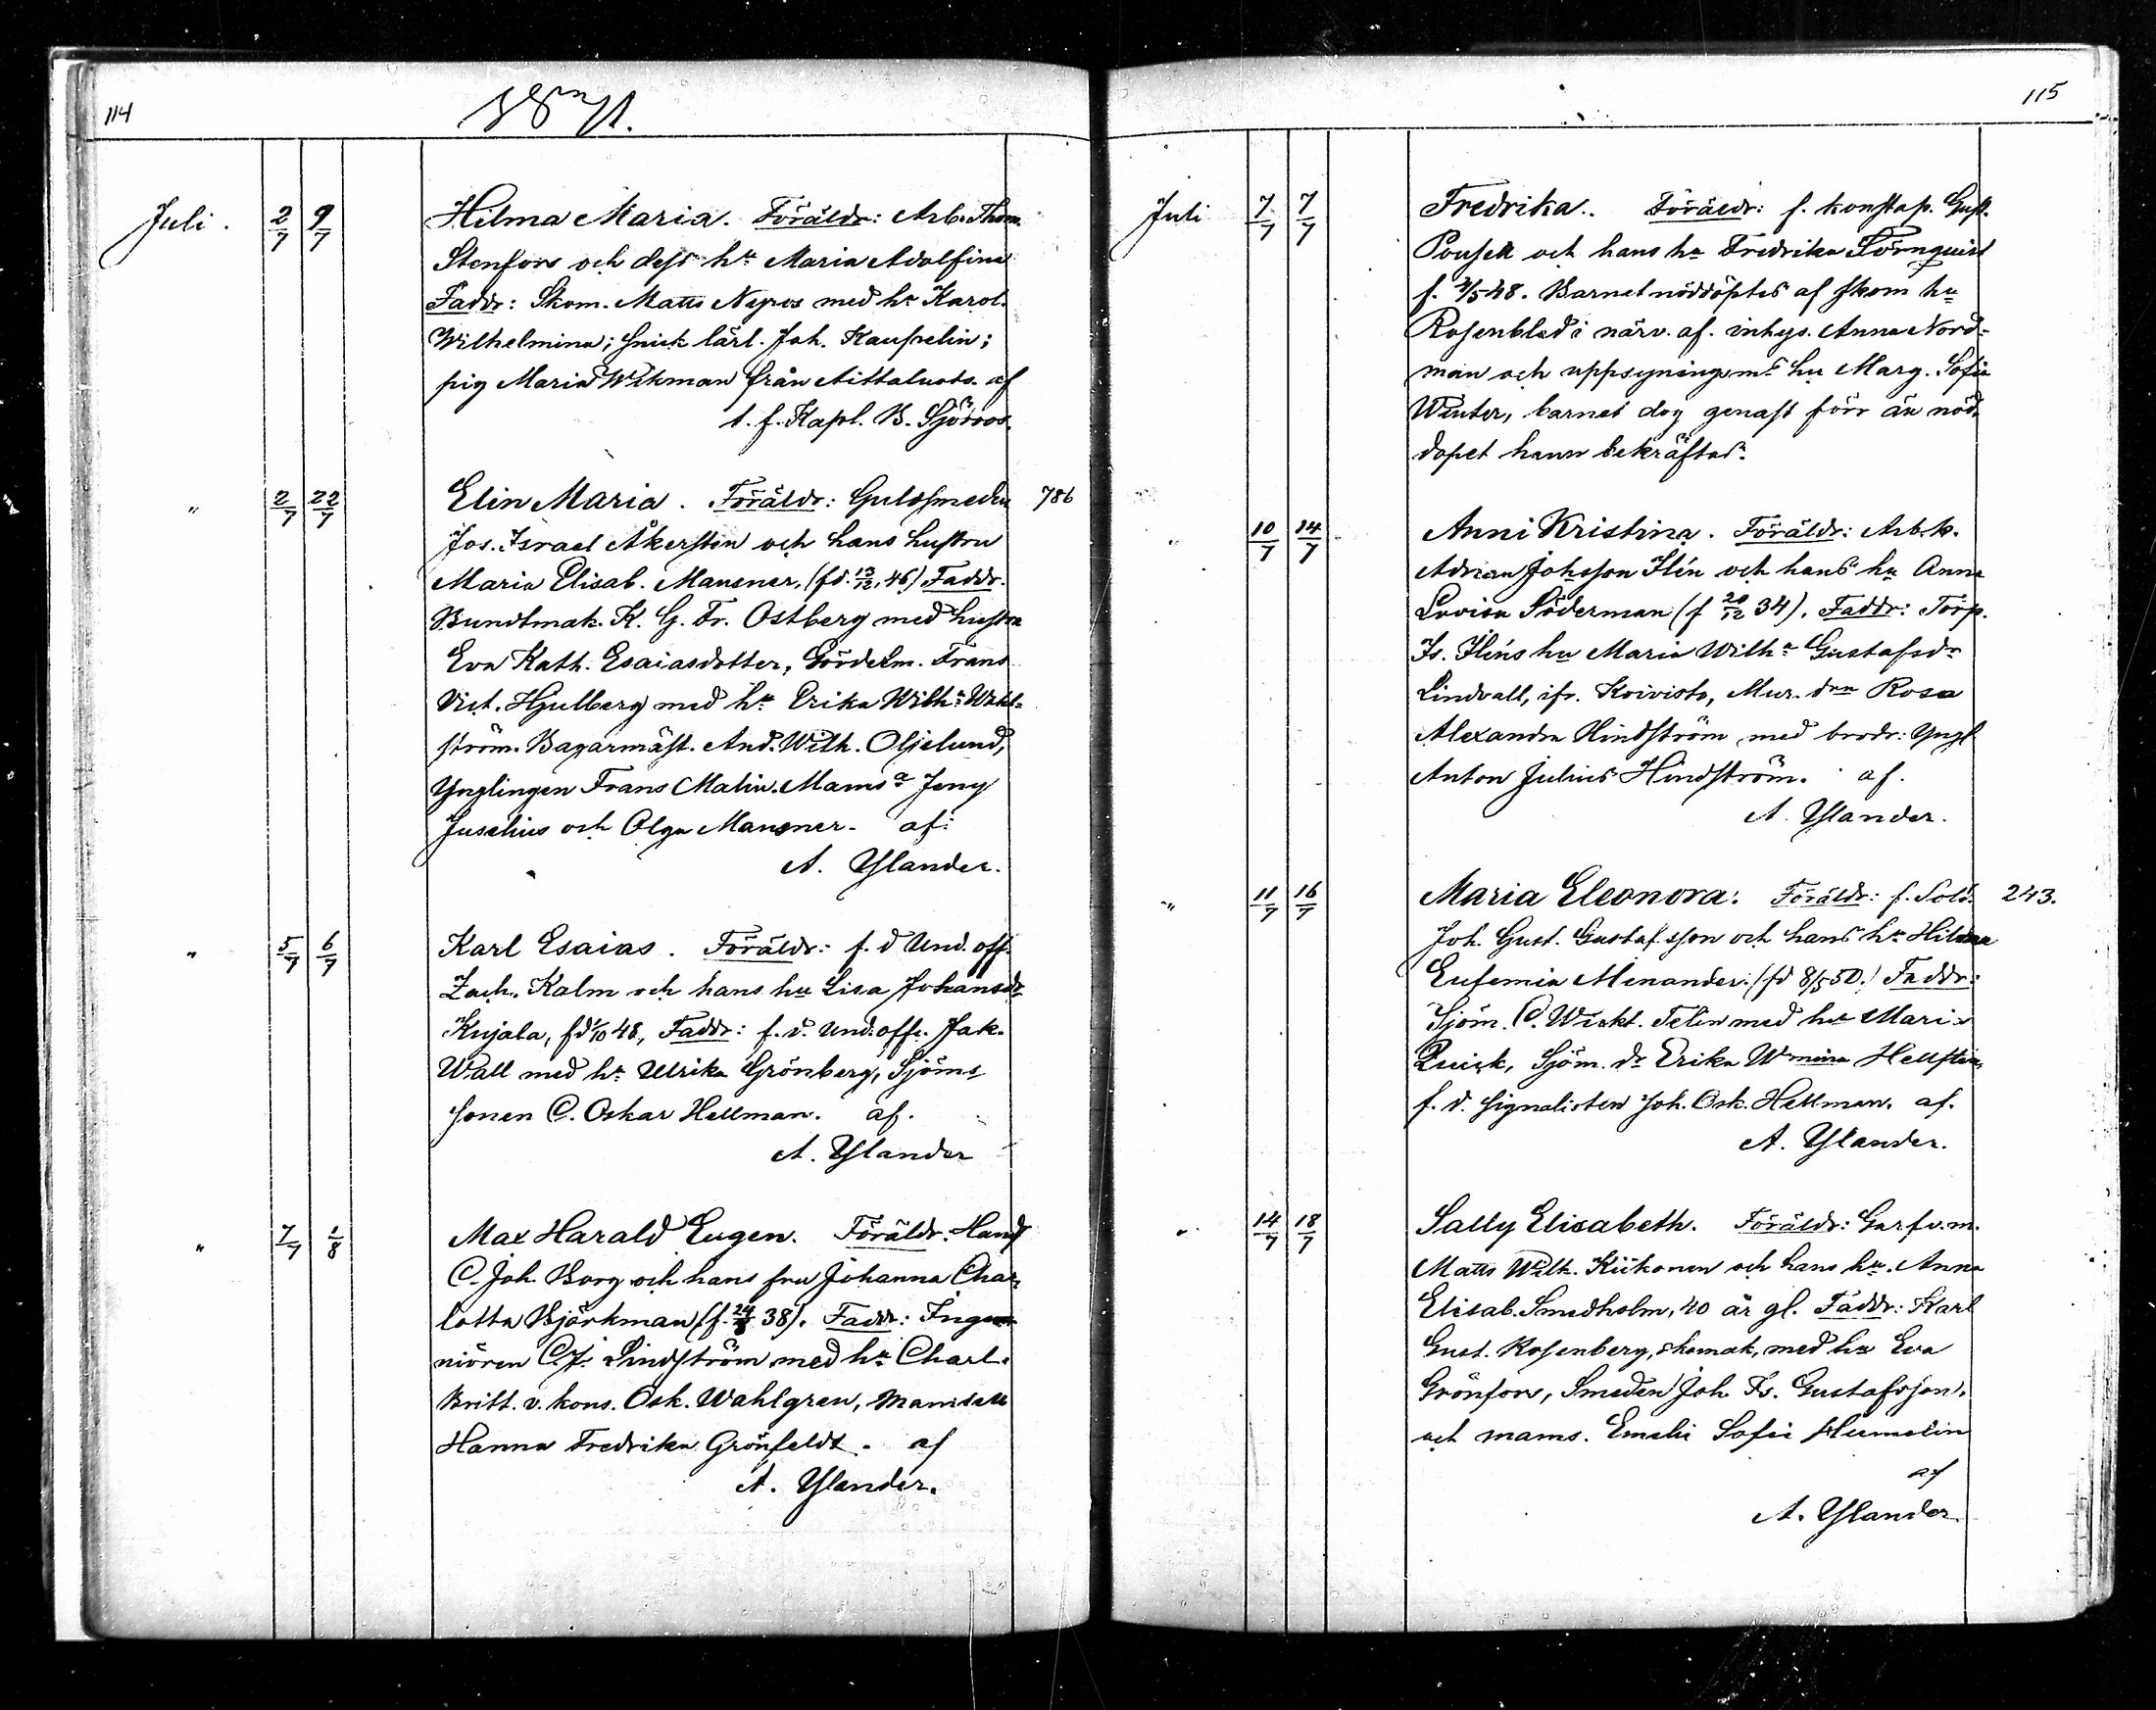 114
1871.
Juli. 2/7 9/7 Hilma Maria. Föräldr: Arb. Thom.
Stenfors och dess hu Maria Adolfina
Faddr: Skom. Matts Nyros med hu Karol.
Wilhelmina; snick lärl. Joh. Kauselin;
pig Maria Wikman från Aittaluoto. af
t. f. Kapl. B. Sjöroos.
" 2/7 22/7 Elin Maria. Föräldr: Guldsmeden 786
Jos. Israel Åkersten och hans hustru
Maria Elisab. Mansner, (fd. 13/12, 46) Faddr.
Bundtmak. K. G. Fr. Ostberg med hustru
Eva Kath. Esaiasdotter, Gördelm. Frans
Vict. Hjulberg med hu Erika Wilh:a Wahl-
ström. Bagarmäst. And. Wilh. Oljelund,
Ynglingen Frans Malin. Mams:a Jeny
Juselius och Olga Mansner. af:
A. Ylander.
" 5/7 6/7 Karl Esaias. Föräldr: f. d Und. off.
Zach. Kalm och hans hu Lisa Johansdr
Kujala, fd 1/10 48, Faddr: f. d. Und. offr. Jak.
Wall med hu Ulrika Grönberg, Sjöms
sonen C. Oskar Hellman. af.
A. Ylander
" 7/7 1/8 Max Harald Eugen. Föräldr: Handl
C. Joh Borg och hans fru Johanna Char-
lotta Björkman (f. 24/8 38). Faddr: Inge-
niören C. J. Lindström med hu Charl.
Britt. v. kons. Osk. Wahlgren, Mamsell
Hanna Fredrika Grönfeldt. af
A. Ylander.
115
Juli 7/7 7/7 Fredrika. Föräldr: f. konstap. Gust.
och hans hu Fredrika Törnquist
f. 48. Barnet nöddöptes af skom hu
Rosenblad i närv. af. inhys. Anna Nord-
man och uppsyningsms hu Marg. Sofia
Winter, barnet dog genast förr än nöd-
dopet hann bekräftas.
" 10/7 14/7 Anni Kristina. Föräldr: Arb. k.
Adrian Johsson Ilén och hans hu Anna
Lovisa Söderman (f 20/12 34). Faddr: Torp.
Is. Iléns hu Maria Wilh:a Gustafsdr
Lindvall, ifr. Koivisto, Mur. drn Rosa
Alexandra Hindström med brodr: Yngl
Anton Julius Hindström. af.
A. Ylander.
" 11/7 16/7 Maria Eleonora. Föräldr: f. Sold. 243.
Joh. Gust. Gustafsson och hans hu Hilma
Eufemia Menander. (fd 8/5 50.) Faddr:
Sjöm. C. Wickt. Telén med hu Maria
Quick, Sjöm. dr Erika Wmina Hellsten,
f. d. signalisten Joh. Osk. Hellman. af.
A. Ylander.
" 14/7 18/7 Sally Elisabeth. Föräldr: Garfv.m.
Matts Wilh. Kiikonen och hans hu. Anna
Elisab. Smedholm, 40 år gl. Faddr: Karl
Gust. Rosenberg, skomak, med hu Eva
Grönfors, Smeden Joh Fs. Gustafsson,
och mams. Emelie Sofie Hummelin
af
A. Ylander.